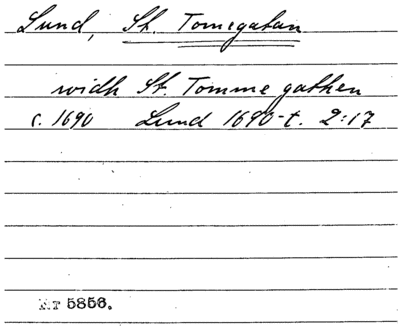 Lund, St. Tomegatan
widh St. Tomme gathen
c. 1690 Lund 1690-t. 2:17
5856.